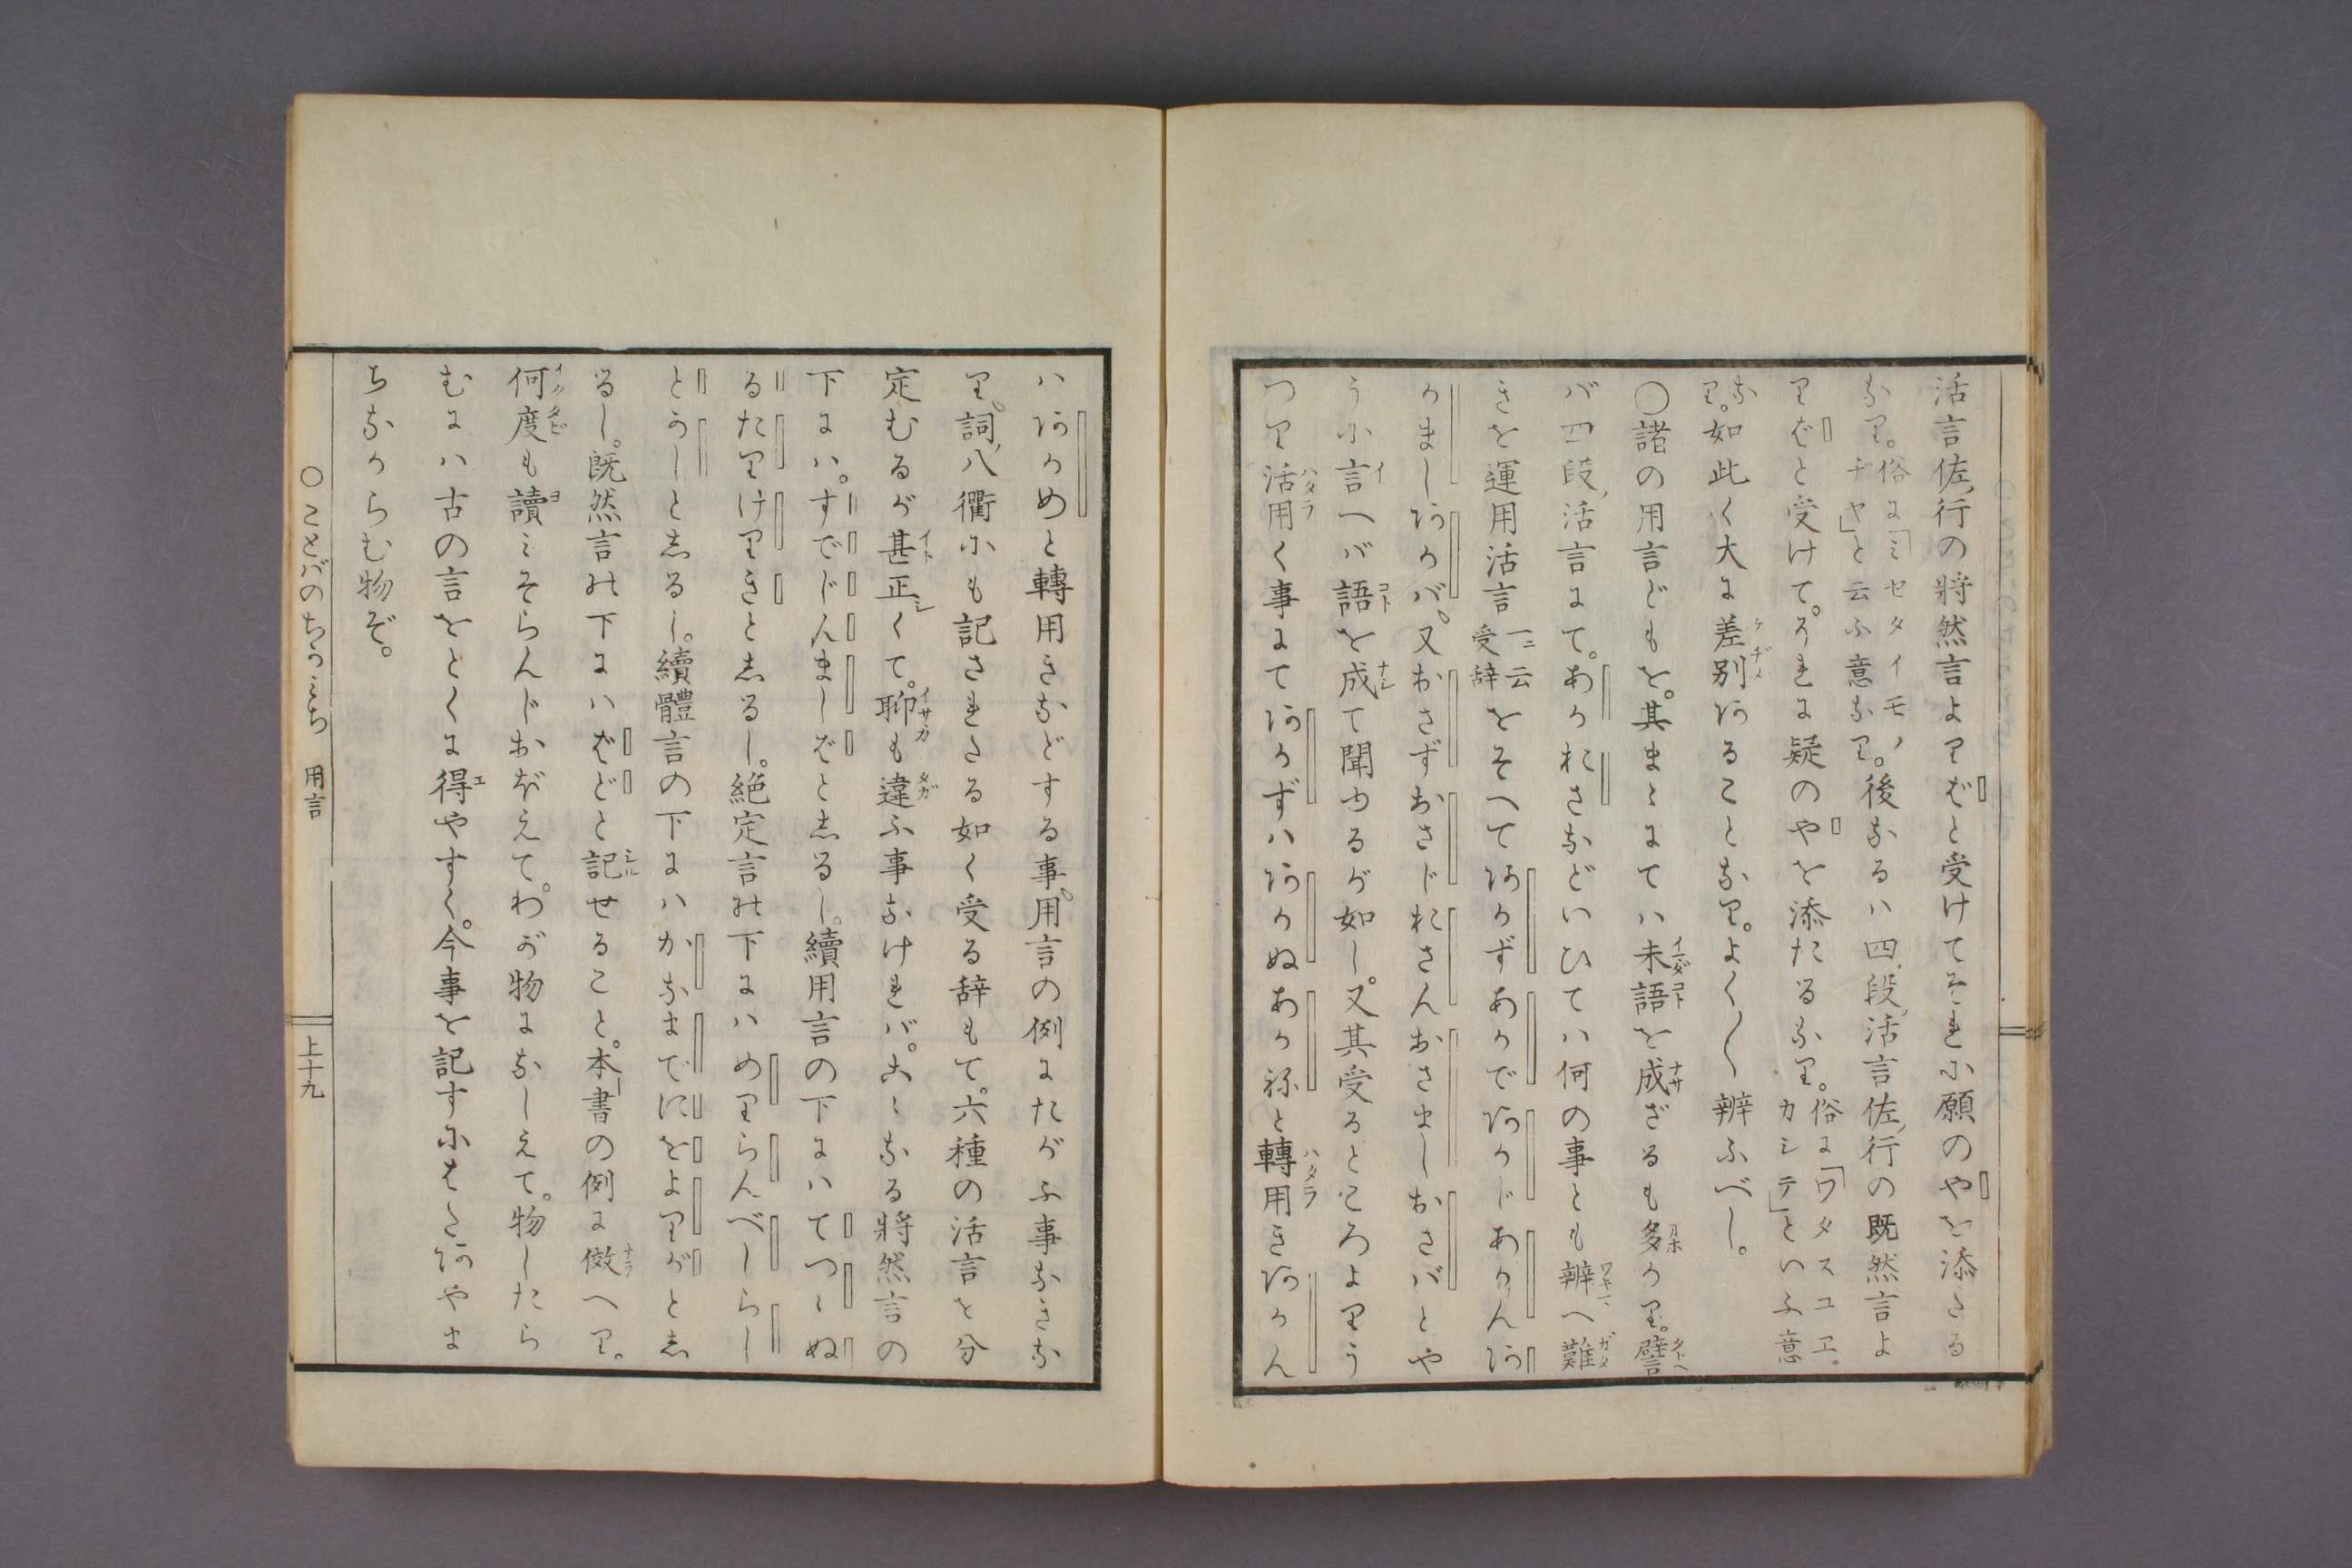 活言佐行の將然言よりばと受けてそれに願のやを添たる
なり。俗に「ミセタイモノヂヤ」と云ふ意なり。後なるハ四段活言佐行の既然言よ
りばと受けて。それに疑のやを添たるなり。俗に「ワタスユエ。カシテ」といふ意
なり。如此く大に差別あることなり。よく〳〵辨ふべし。
○諸の用言どもを。其まゝにてハ未語を成ざるも多かり。譬
バ四段活言にて。あかおさなどいひてハ何の事とも辨へ難
きを運用活言一ニ云受辞をそへてあかずあかであかじあかんあ
かましあかバ。又おさずおさじおさんおさましおさバとや
うに言へバ語を成て聞ゆるが如し。又其受るところよりう
つり活用く事にてあかずハあかぬあかねと轉用きあかん
ハあかめと轉用きなどする事。用言の例にたがふ事なきな
り。詞八衢にも記されたる如く受る辞もて。六種の活言を分
定むるが甚正しくて。聊も違ふ事なけれバ。こゝなる將然言の
下にハ。すでじんましばとしるし。續用言の下にハてつゝぬ
るたりけりきとしるし。絶定言の下にハめりらんべしらし
とうしとしるし。續體言の下にハかなまでにをよりがとし
るし。既然言の下にハばどと記せること。本書の例に傚へり。
何度も讀ミそらんじおぼえて。わが物になしえて。物したら
むにハ古の言をとくに得やすく。今事を記すにもたあやま
ちなからむ物ぞ。
○ことばのちかみち 用言 上十九